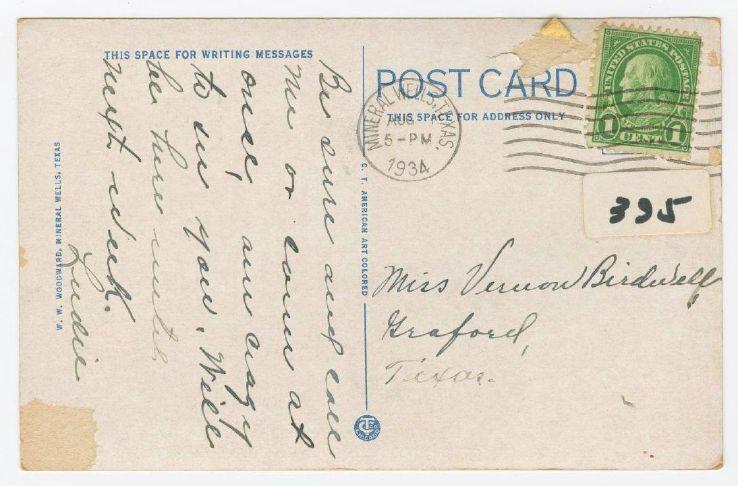 THIS SPACE FOR WRITING MESSAGES
Be sure and call
me or come at
once, am crazy
to see you. Will
be here until
next week.
Ludie
W. W. WOODWARD, MINERAL WELLS, TEXAS
C. T. AMERICAN ART COLORED
POST CARD
THIS SPACE FOR ADDRESS ONLY
MINERAL WELLS, TEXAS.
AUG
5-PM
1934
UNITED STATES POSTAGE
1 CENT 1
395
Miss Vernon Birdwell
Graford,
Texas.